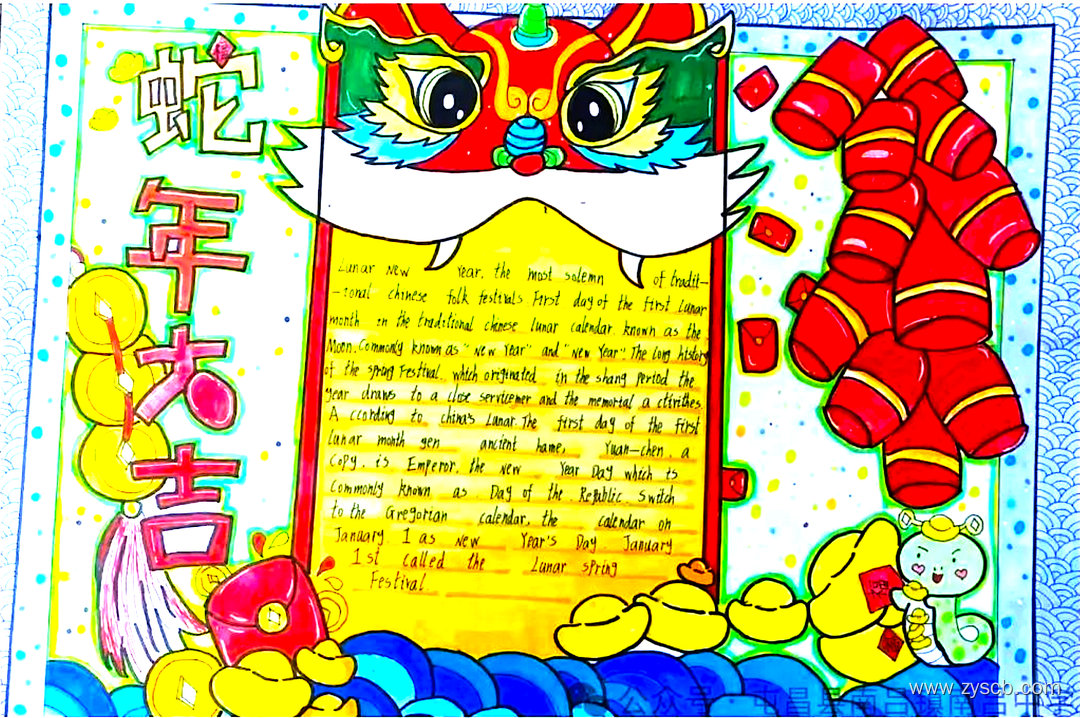 蛇
年
大
吉
Lunar New Year, the most solemn of tradit-
-ional chinese folk festivals First day of the first Lunar
month in the traditional chinese lunar calendar. known as the
Moon, Commonly known as "New Year" and "New Year". The long history
of the spring Festival, which originated in the shang period the
year draws to a close servicemer and the memorial a ctivithes.
A ccording to china's Lunar. The first day of the first
lunar month gen ancient hame, Yuan-chen, a
Copy, is Emperor, the new Year Day which is
Commonly known as Day of the Republic Switch
to the Gregorian calendar, the calendar on
January 1 as new Year's Day January
1st called the Lunar spring
Festival
公众号
屯昌县南吕镇南吕中学
www.zyscb.com